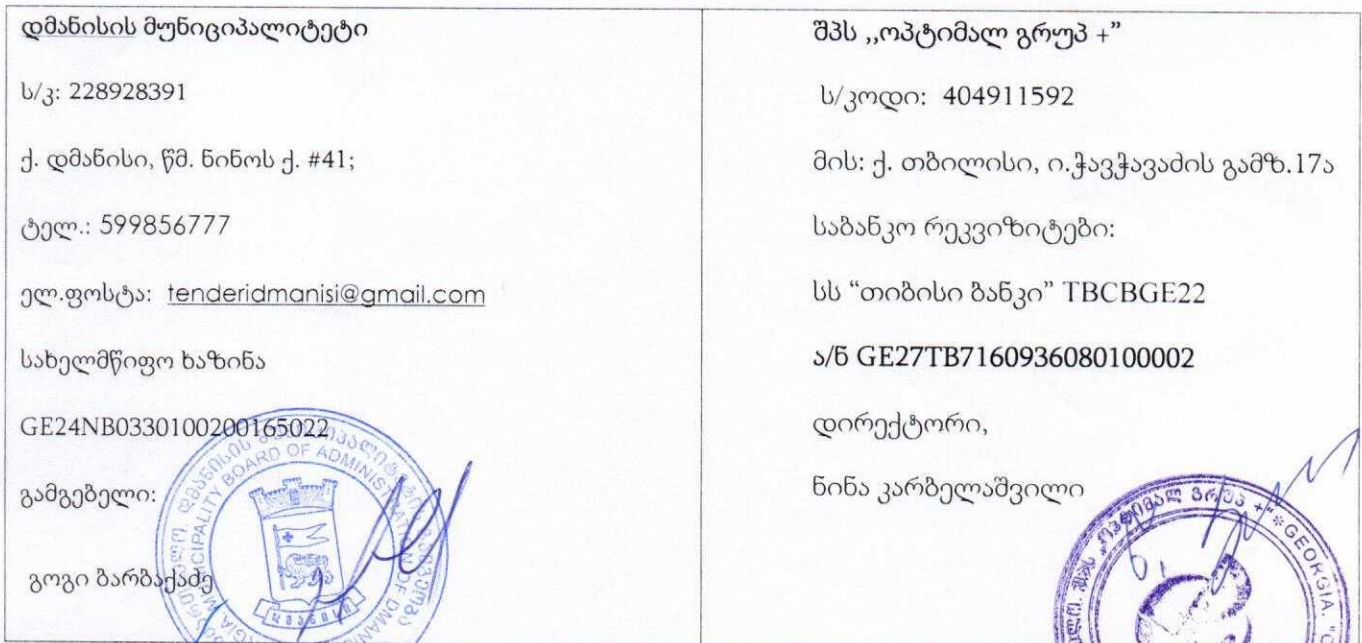 დმანისის მუნიციპალიტეტი
ს/კ: 228928391
ქ. დმანისი, წმ. ნინოს ქ. #41;
ტელ.: 599856777
ელ.ფოსტა: tenderidmanisi@gmail.com
სახელმწიფო ხაზინა
GE24NB0330100200165022
გამგებელი:
გოგი ბარბაქაძე
BOARD OF ADMINISTRATION OF DMANISI
MUNICIPALITY
დმანისი
შპს ,,ოპტიმალ გრუპ +”
ს/კოდი: 404911592
მის: ქ. თბილისი, ი.ჭავჭავაძის გამზ.17ა
საბანკო რეკვიზიტები:
სს “თიბისი ბანკი” TBCBGE22
ა/ნ GE27TB7160936080100002
დირექტორი,
ნინა კარბელაშვილი
გრუპ +
GEORGIA.